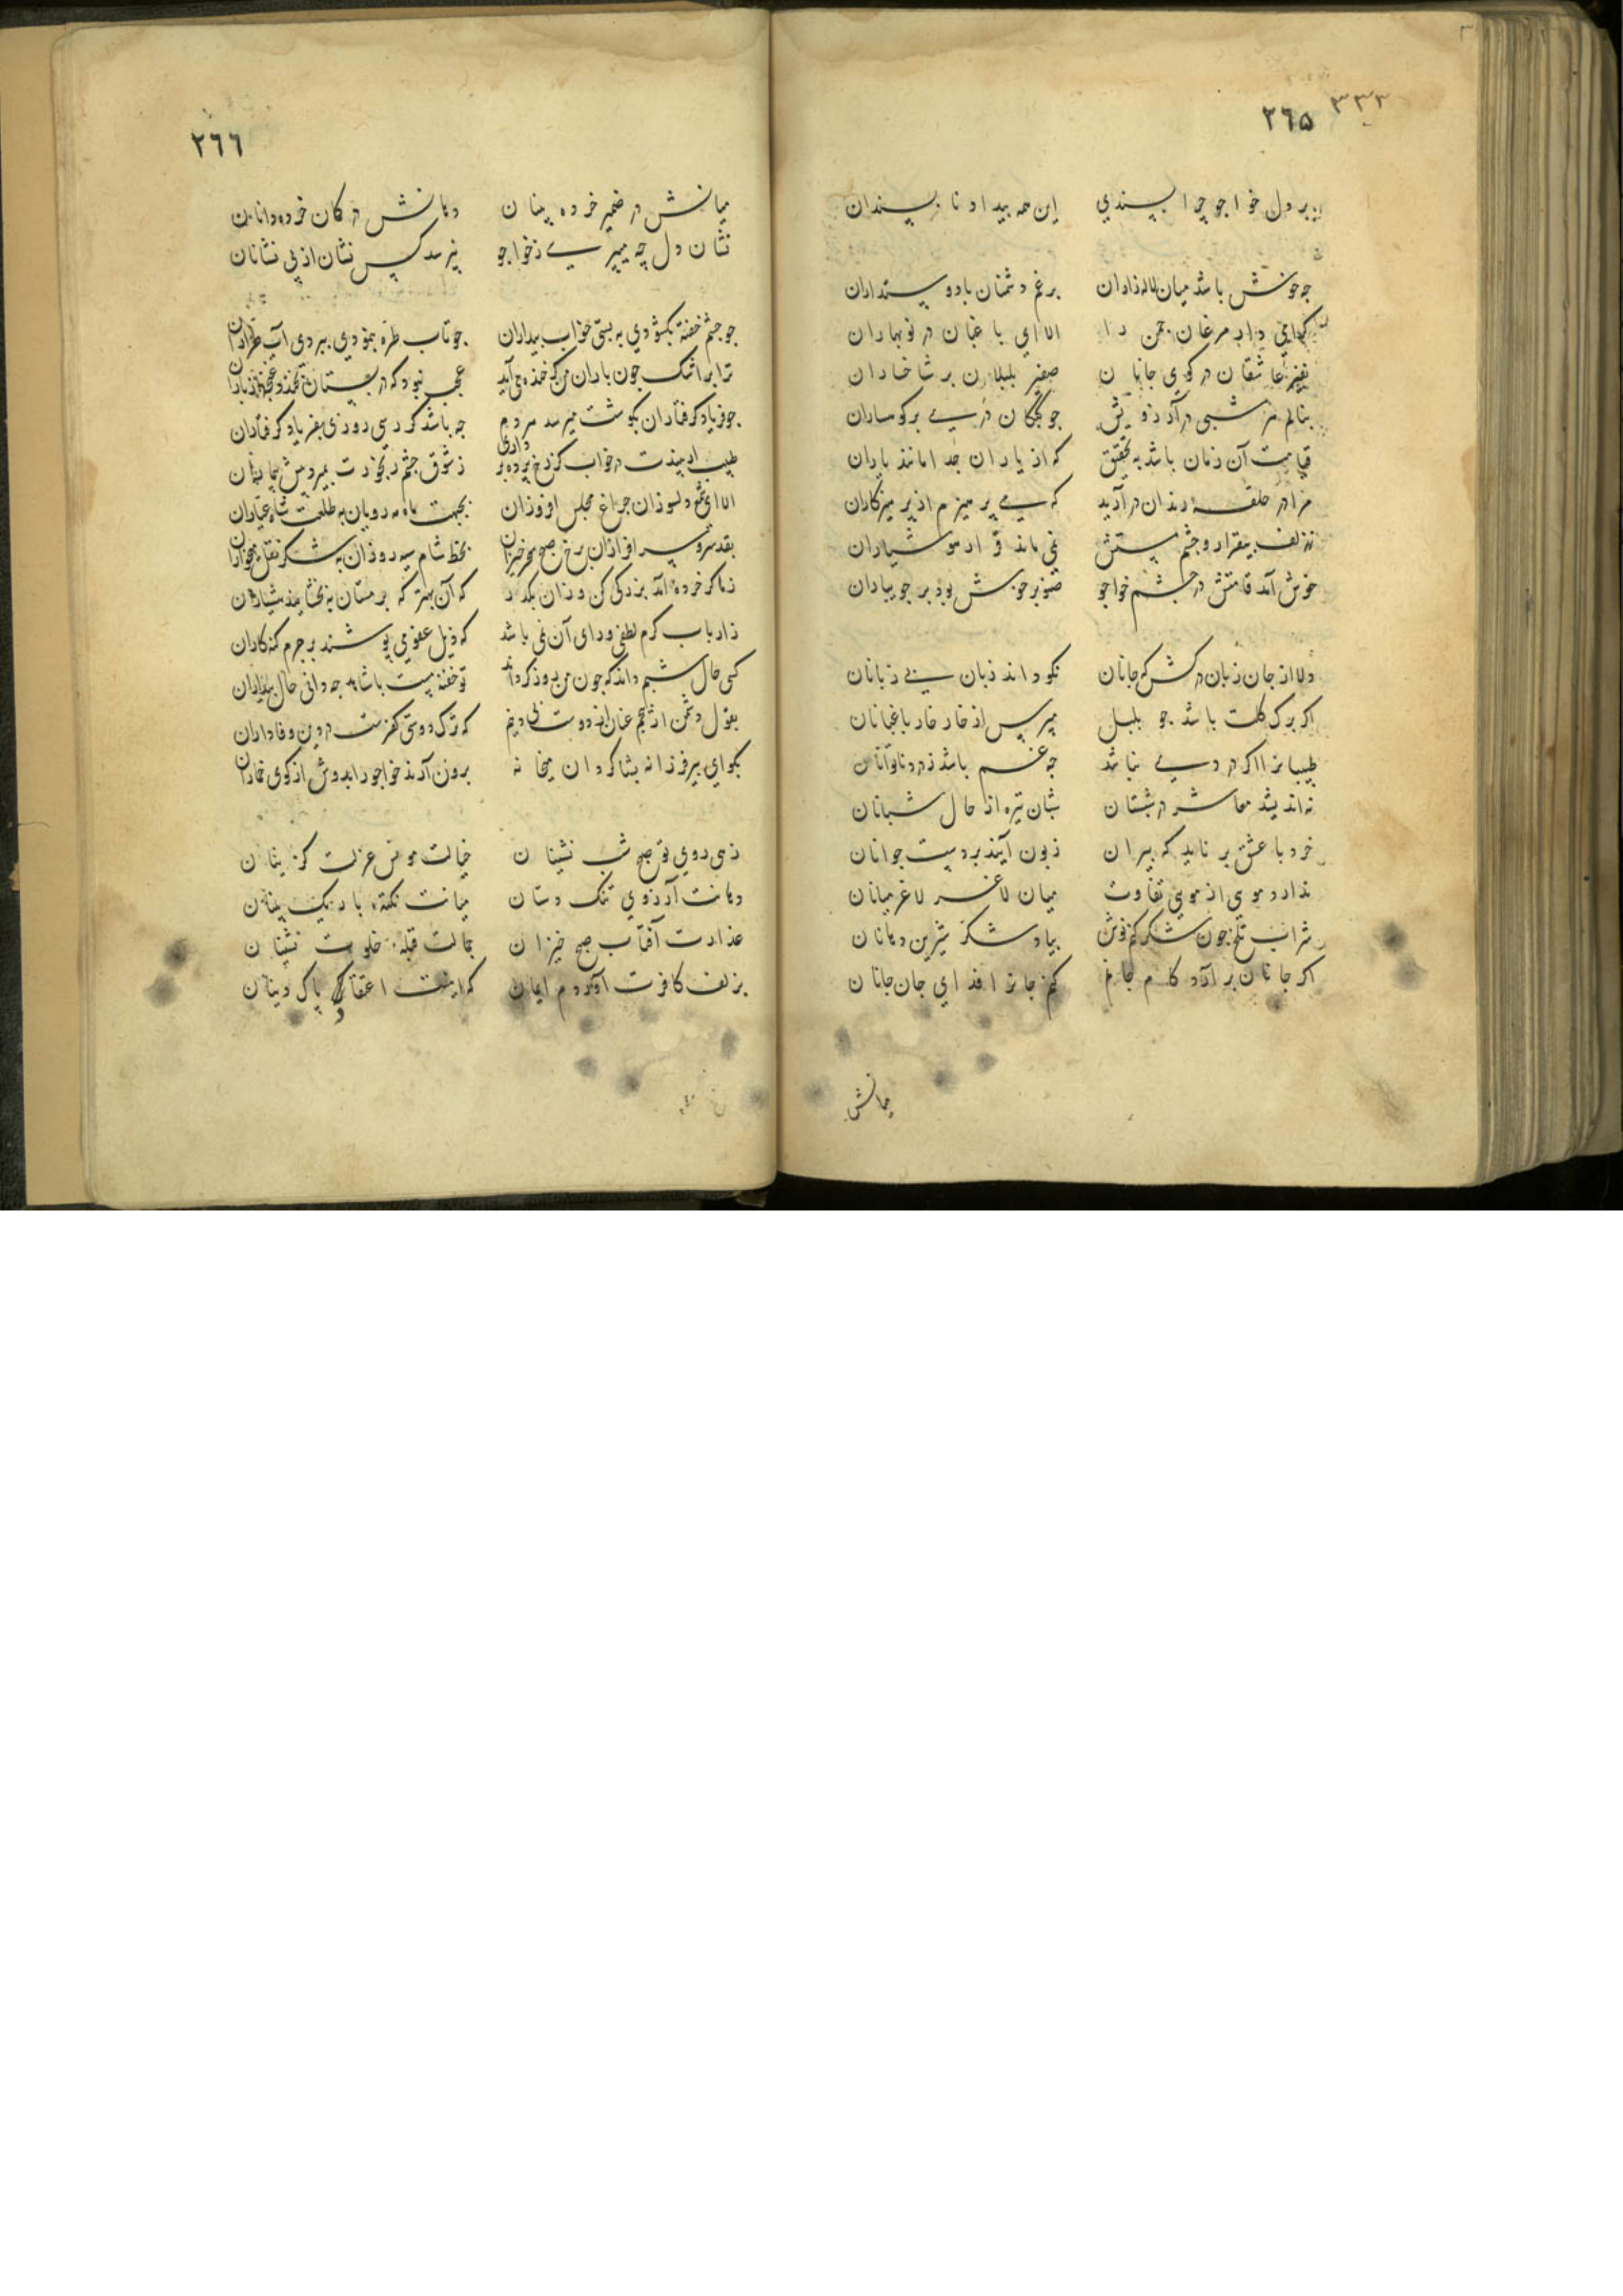 ٣٣٣
٢٦٥
بر دل خواجو چرا بپسندی این همه بیداد ناپسندان
چه خوش باشد میان لاله زاران برغم دشمنان با دوستداران
الا ای باغبان در نوبهاران
نفیر عاشقان در کوی جانان صفیر بلبلان بر شاخساران
بنالم هر شبی در آرزویش چو کبکان دری بر کوهساران
قیامت آن زمان باشد به تحقیق که از یاران جدا مانند یاران
مرا در حلقه رندان درآرید که می پرهیزم از پرهیزکاران
ز زلف بیقرار و چشم مستش نمی ماند قرار هوشیاران
خوش آمد قامتش در چشم خواجو صنوبر خوش بود بر جویباران
دلا از جان زبان درکش که جانان نکو داند زبان بی زبانان
اگر برگ گلت باشد چو بلبل مپرس از خار خار باغبانان
طبیبان را اگر دردی نباشد چه غم باشد ز درد ناتوانان
نه اندیشد معاشر در شبستان شبان تیره از حال شبانان
خرد با عشق بر ناید که پیران زبون آیند بر دست جوانان
ندارد موی از موی تفاوت میان لاغر لاغر میانان
شراب تلخ چون شکر کنم نوش بیاد شکر شیرین دهانان
اگر جانان برآرد کام جانم کنم جان را فدای جان جانان
میانش
٢٦٦
میانش در ضمیر خرده بینان دهانش در گمان خرده دانان
نشان دل چه میپرسی ز خواجو نپرسد کس نشان از بی نشانان
چو چشم خفته بگشودی ببستی خواب بیداران چو تاب طره بنمودی ببردی آب طراران
ترا بر اشک چون باران من گر خنده می آید عجب نبود که در بستان بخندد غنچه از باران
چو فریاد گرفتاران بگوشت میرسد هر دم چه باشد گر رسی روزی بفریاد گرفتاران
طبیب ار بیندت در خواب کز رخ پرده برداری ز شوق چشم رنجورت بمیرد پیش بیماران
الا ای شمع دلسوزان چراغ مجلس افروزان بجبهت ماه مه رویان به طلعت شاه عیاران
بقد سرو سرافرازان برخ صبح سحرخیزان بخط شام سیه روزان به شکر نقل میخواران
ز ما گر خرده آمد بزرگی کن وزان بگذر که آن بهتر که بر مستان ببخشایند هشیاران
ز ارباب کرم لطفی ورای آن نمی باشد که ذیل عفو می پوشند بر جرم گنه کاران
کسی حال شبم داند که چون من روز گرداند تو خفته مست با شاهد چه دانی حال بیداران
بقول دشمن ار پیچم عنان از دوست بی دینم که ترک دوستی کفرست در دین وفاداران
بگو ای پیر فرزانه بشاگردان میخانه برون آرند خواجو را بدوش از کوی خماران
زهی روی تو صبح شب نشینان خیالت مونس عزلت گزینان
دهانت آرزوی تنگ دستان میانت نکته باریک بینان
عذارت آفتاب صبح خیزان جمالت قبله خلوت نشینان
بزلف کافرت آوردم ایمان که اینست اعتقاد پاک دینان